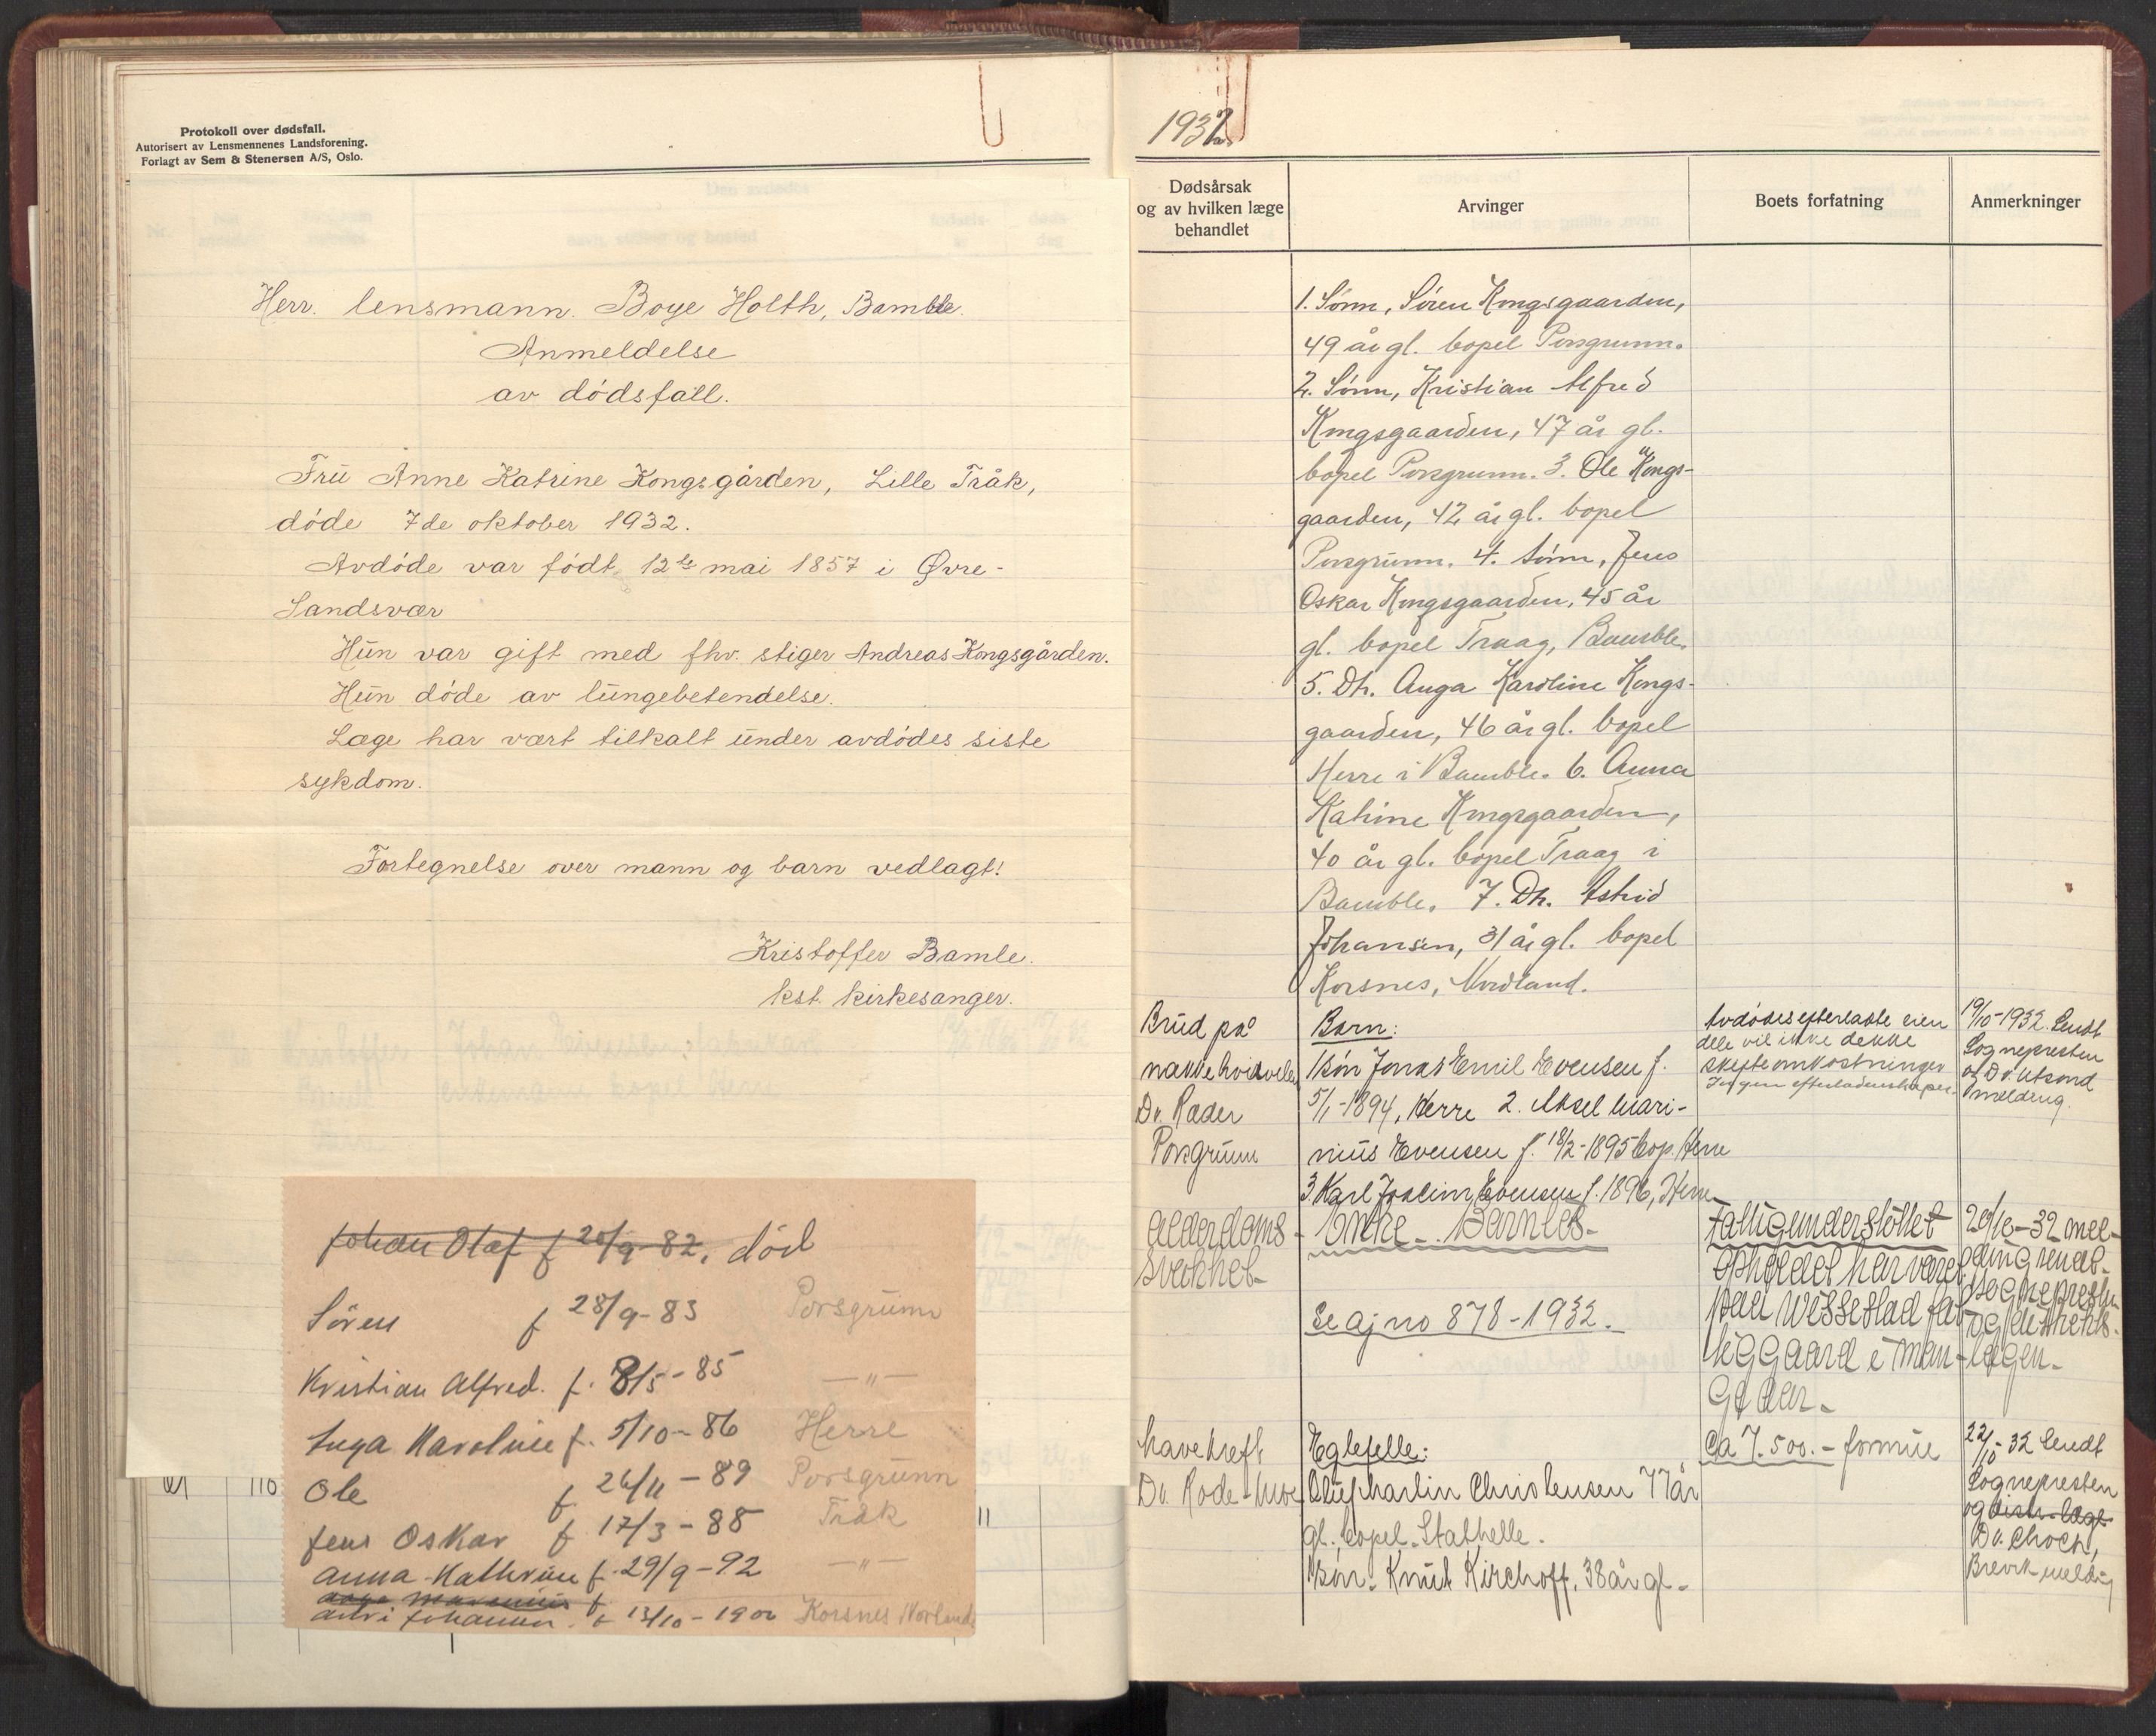 Protokoll over dødsfall.
Autorisert av Lensmennenes Landsforening.
Forlagt av Sem & Stenersen A/S, Oslo.
Herr. lensmann. Boye Holth, Bamble.
Anmeldelse
av dødsfall.
Fru Anne Katrine Kongsgården, Lille Tråk,
døde 7de oktober 1932.
Avdøde var født 12te mai 1857 i Øvre-
Sandsvær
Hun var gift med fhv. stiger Andreas Kongsgården.
Hun døde av lungebetendelse.
Læge har vært tilkalt under avdødes siste
sykdom.
Fortegnelse over mann og barn vedlagt!
Kristoffer Bamle.
kst. kirkesanger.
Johan Olaf f 20/9-82, død
Sören f 28/9-83 Porsgrunn
Kristian Alfred. f. 8/5-85 —"—
Inga Karoline f. 5/10-86 Herre
Ole f 26/11-89 Porsgrunn
Jens Oskar f 17/3-88 Tråk
Anna-Kathrine f. 29/9-92 —"—
Johansen f 13/10-1900 Korsnes Norland
110
11
1932
Dødsårsak
og av hvilken læge
behandlet
Arvinger
Boets forfatning
Anmerkninger
1. Sønn, Søren Kongsgaarden,
49 år gl. bopel Porsgrunn.
2. Sønn, Kristian Alfred
Kongsgaarden, 47 år gl.
bopel Porsgrunn. 3. Ole Kongs-
gaarden, 42 år gl. bopel
Porsgrunn. 4. Sønn, Jens
Oskar Kongsgaarden, 45 år
gl. bopel Traag, Bamble.
5. Dtr. Anga Karoline Kongs-
gaarden, 46 år gl. bopel
Herre i Bamble. 6. Anna
Katrine Kongsgaarden,
40 år gl. bopel Traag i
Bamble. 7. Dtr. Astrid
Johansen, 31 år gl. bopel
Korsnes, Nordland.
Brud på
nakkehvirvelen
Dr. Ræder
Porsgrunn
Barn:
1 søn Jonas Emil Evensen f.
5/1-1894, Herre 2. Aksel Mari-
nius Evensen f. 18/2-1895 bop. Herre
3 Karl Joakim Evensen f. 1896, Herre
Avdødes efterladte eien
dele vil ikke dekke
skifteomkostninger
Ingen efterladenskaper.
19/10-1932. Sendt
Sognepresten
og Dr. Utsond
melding.
Alderdoms-
svakhet-
Enke-. Barnløs-
Se aj no 878-1932.
Fattigunderstøttet
Opholdet har været
paa Wissestad fat-
tiggaard i man-
ge aar.
20/10-32 mel-
ding sendt-
sognepresten
og distrikts-
lægen-
Mavekreft
Dr. Rode-
Egtefelle:
Oluf Martin Christensen 77 år
gl., bopel. Stathelle.
1 søn- Knut Kirchoff, 38 år gl-
Ca 7.500.- formue
22/10-32 Sendt
Sognepresten
og distr. læge
Dr. Choch,
Brevik melding